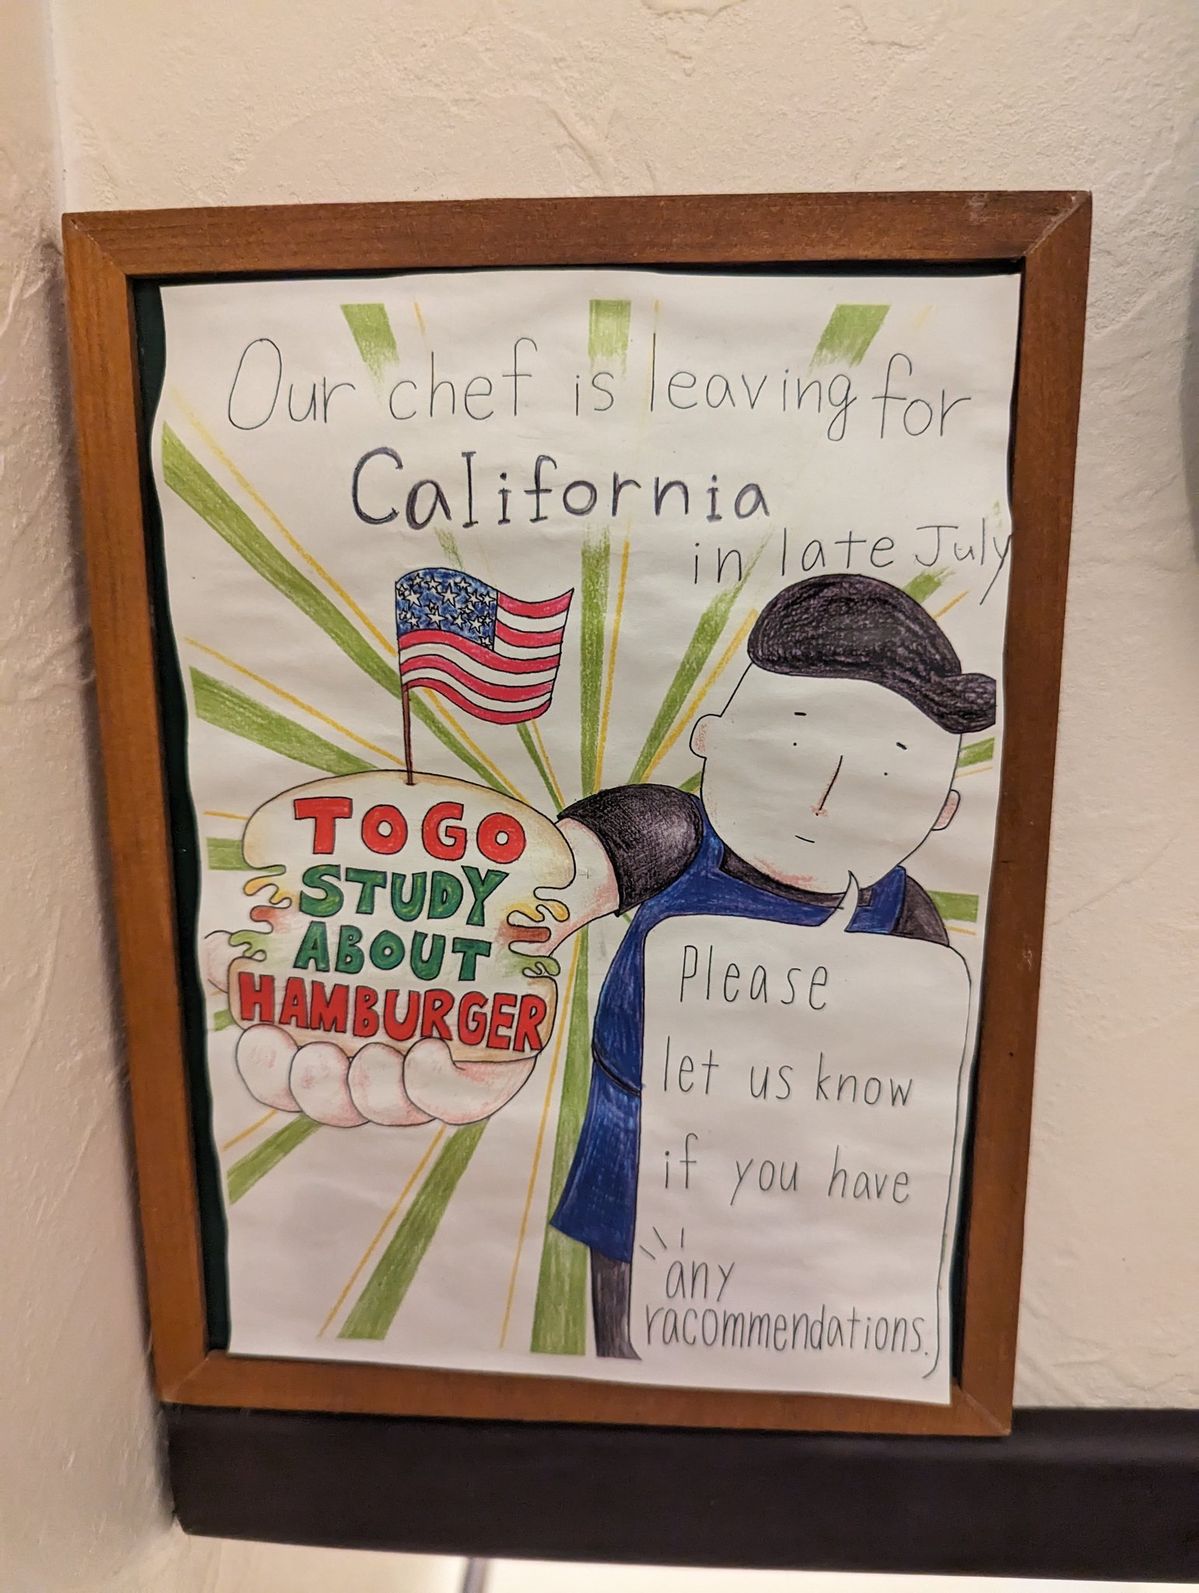 Our chef is leaving for
California
in late July
TO GO
STUDY
ABOUT
HAMBURGER
Please
let us know
if you have
any
racommendations.